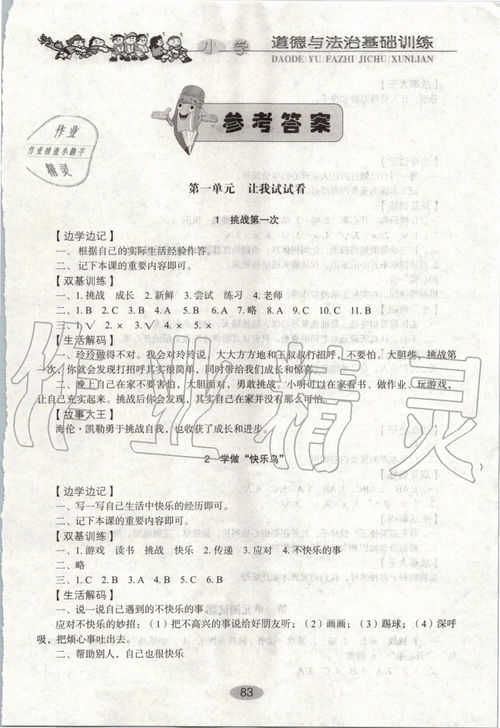 小学
道德与法治基础训练
DAODE YU FAZHI JICHU XUNLIAN
参考答案
作业
作业检查小助手
精灵
第一单元 让我试试看
1 挑战第一次
【边学边记】
一、根据自己的实际生活经验作答。
二、记下本课的重要内容即可。
【双基训练】
一、1. 挑战 成长 2. 新鲜 3. 尝试 练习 4. 老师
二、1. B 2. C 3. B 4. A 5. B 6. A 7. 略 8. A 9. C 10. C 11. B
三、1. √ 2. × 3. × 4. √ 5. ×
【生活解码】
一、玲玲做得不对。我会对玲玲说，大大方方地和王叔叔打招呼，不要怕。大胆些，挑战第
一次，你就会发现打招呼其实很简单，同时带给我们成长和惊喜。
二、晚上自己在家不要害怕，大胆面对，勇敢挑战。小明可以在家看书、做作业、玩游戏，
让自己充实起来。挑战后你会发现，其实自己在家并没有那么可怕。
【故事大王】
海伦·凯勒勇于挑战自我，也收获了成长和进步。
2 学做“快乐鸟”
【边学边记】
一、写一写自己生活中快乐的经历即可。
二、记下本课的重要内容即可。
【双基训练】
一、1. 游戏 读书 挑战 快乐 2. 传递 3. 应对 4. 不快乐的事
二、略
三、1. C 2. B 3. A 4. B 5. C 6. B
【生活解码】
一、说一说自己遇到的不快乐的事。
应对不快乐的妙招：（1）把不高兴的事说给好朋友听；（2）画画；（3）踢球；（4）深呼
吸，把烦心事吐出去。
二、帮助别人，自己也很快乐
83
作业精灵